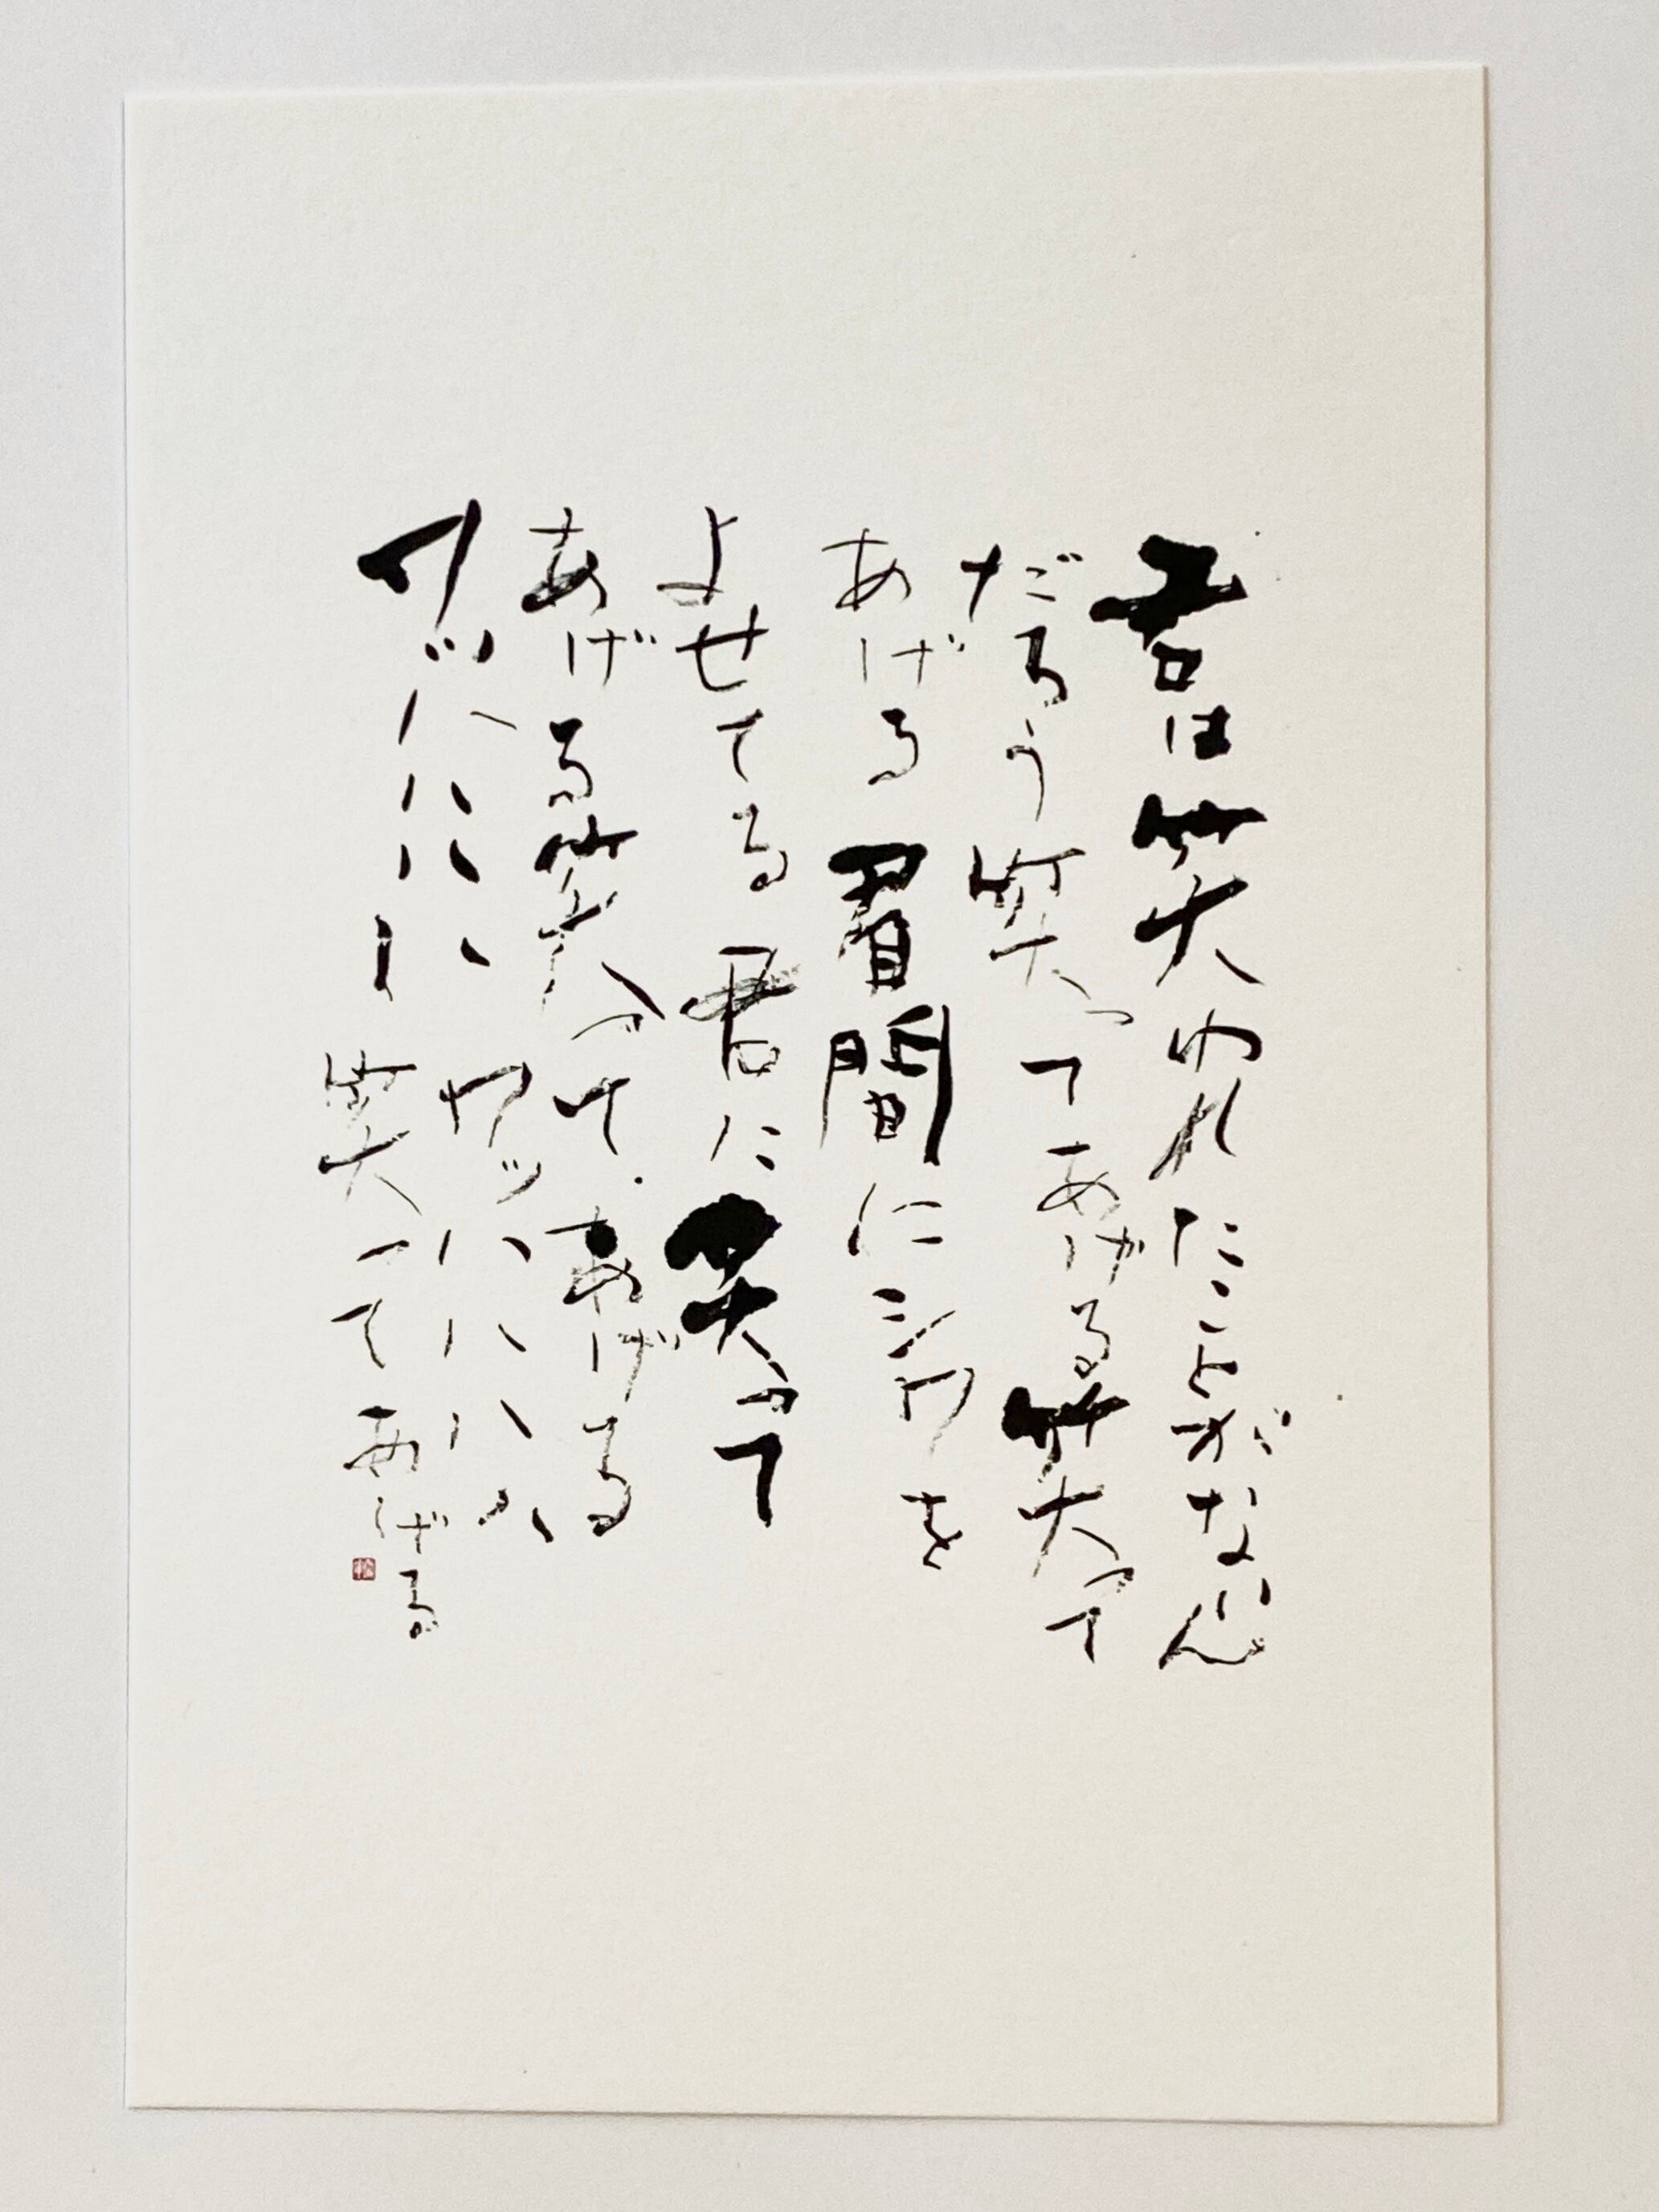 君は笑われたことがないん
だろう笑ってあげる笑って
あげる眉間にシワを
よせてる君に笑って
あげる笑ってあげる
ワッハハハハ ワッハハハハ
笑ってあげる